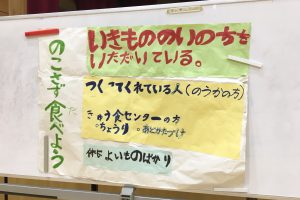 のこさず食べよう
いきもののいのちを
いただいている。
つくってくれている人(のうかの方)
きゅう食センターの方
ちょうり。あとかたづけ
体によいものばかり